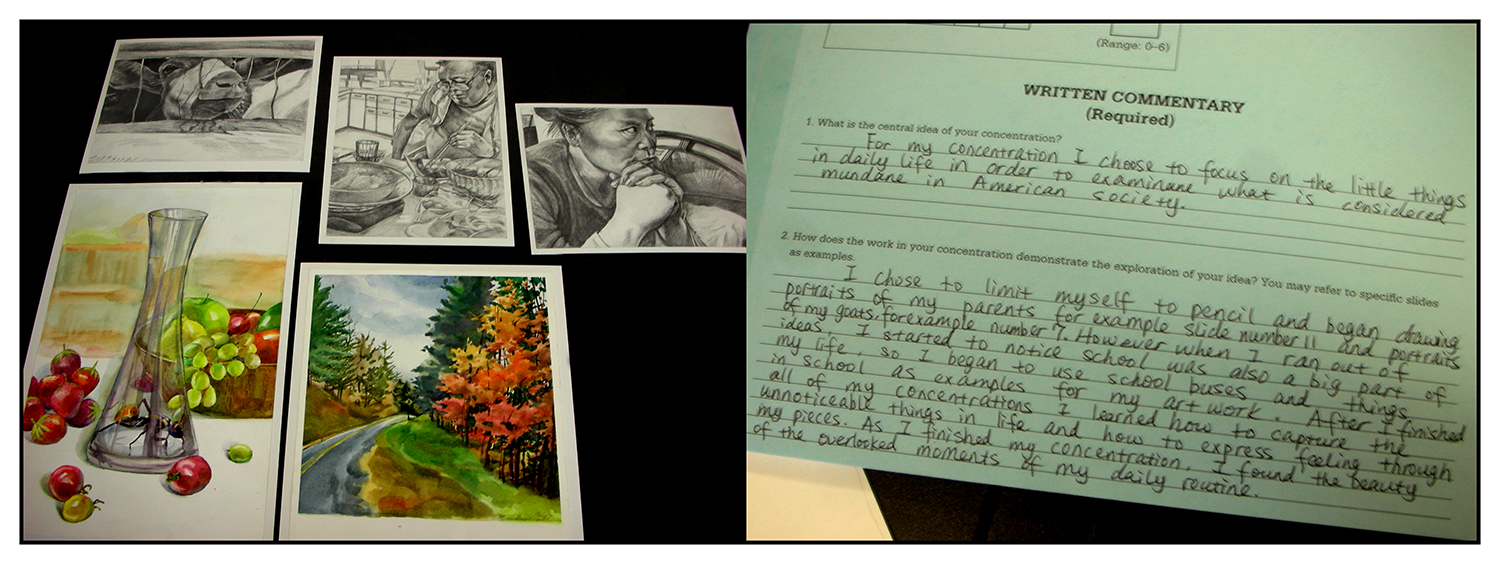 (Range: 0–6)
WRITTEN COMMENTARY
(Required)
1. What is the central idea of your concentration?
For my concentration I choose to focus on the little things
in daily life in order to examinane what is considered
mundane in American society.
2. How does the work in your concentration demonstrate the exploration of your idea? You may refer to specific slides
as examples.
I chose to limit myself to pencil and began drawing
portraits of my parents for example slide number 11 and portraits
of my goats, for example number 7. However when I ran out of
ideas, I started to notice school was also a big part of
my life, so I began to use school buses and things
in school as examples for my art work. After I finished
all of my concentrations I learned how to capture the
unnoticeable things in life and how to express feeling through
my pieces. As I finished my concentration, I found the beauty
of the overlooked moments of my daily routine.